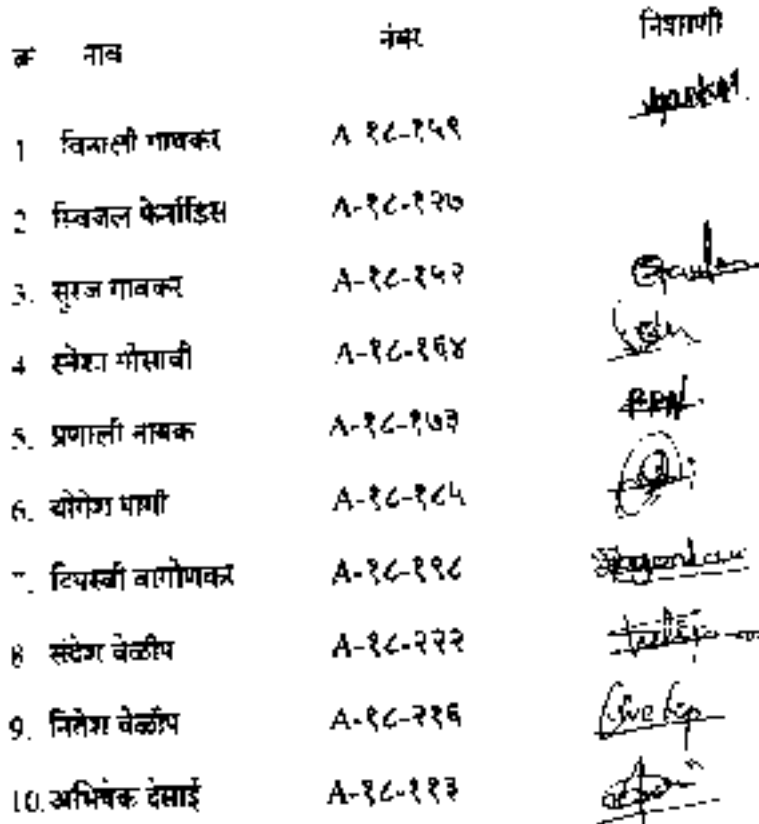 क्र नाव नंबर निशाणी
1 विनाली गावकर A-१८-१५९
2 स्विजल फेर्नांडिस A-१८-१२७
3. सुरज गावकर A-१८-१५२
4 स्नेशा गोसावी A-१८-१६४
5. प्रणाली नायक A-१८-१७३ PPN
6. योगेश पागी A-१८-१८५
7. वागोणकर A-१८-१९८
8 संदेश वेळीप A-१८-२२२
9. नितेश वेळीप A-१८-२१६
10. अभिषेक देसाई A-१८-११३